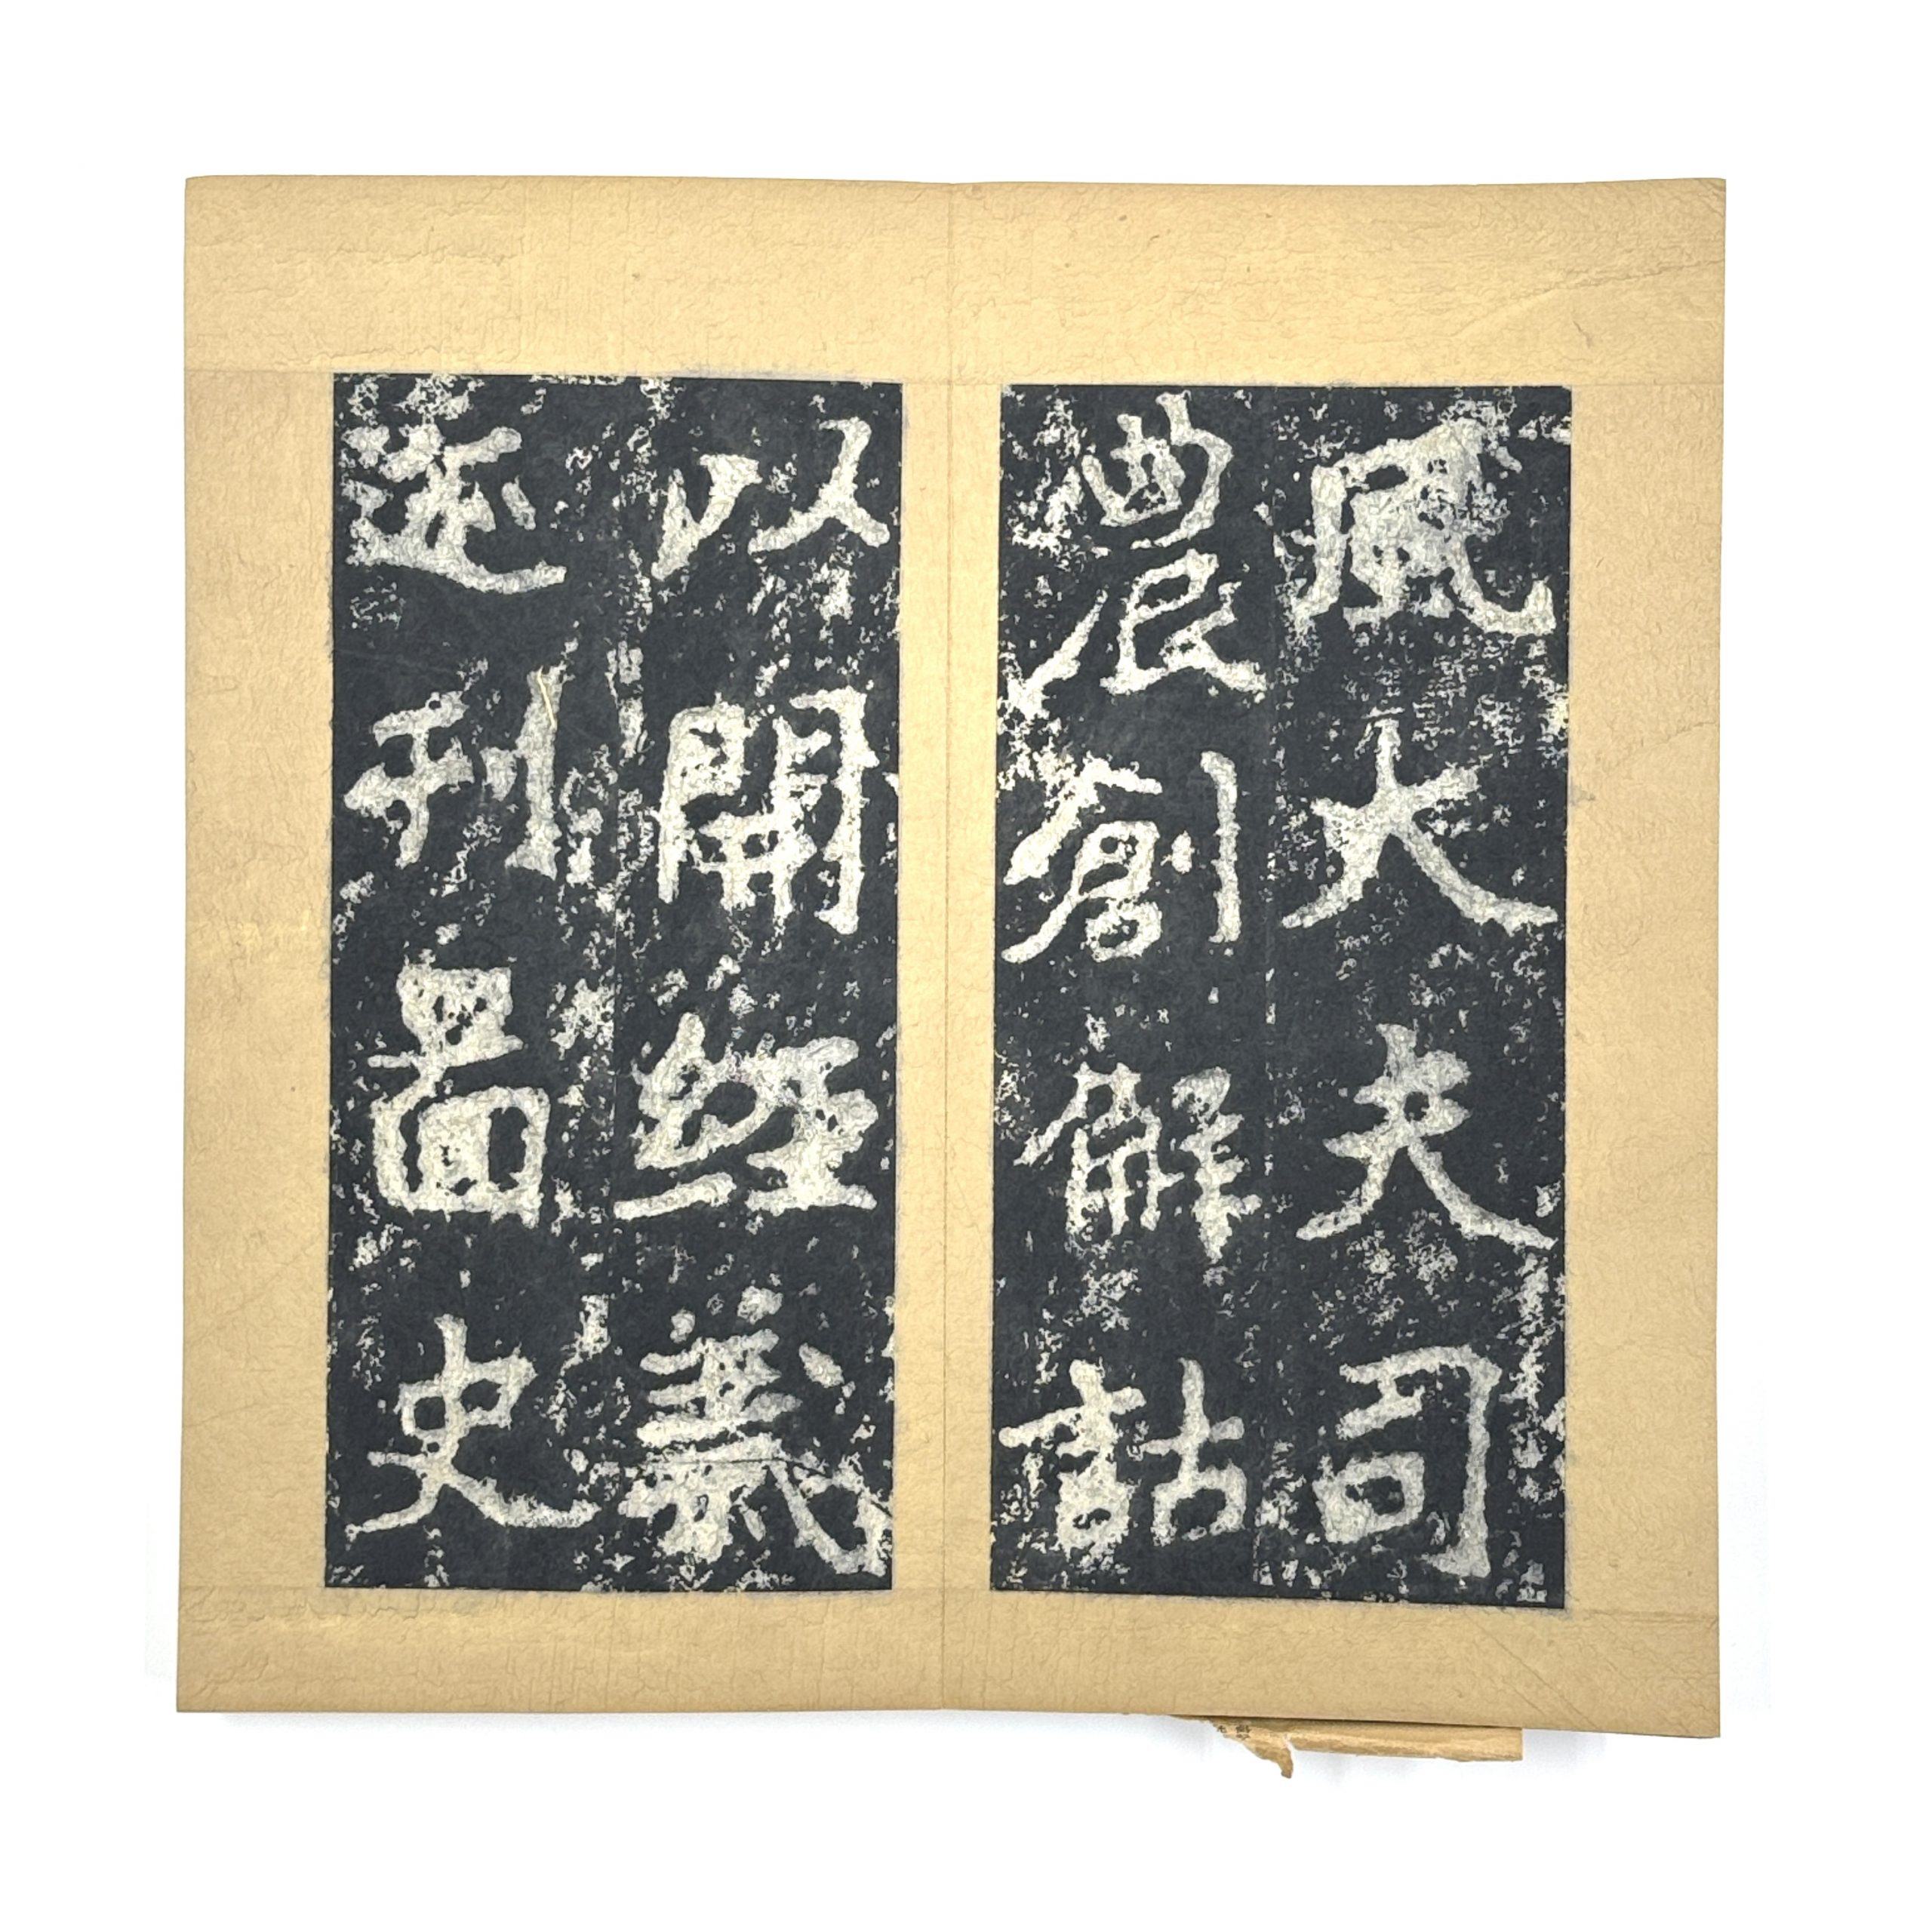 風大夫司
農創解詁
以開經義
迹刊圖史